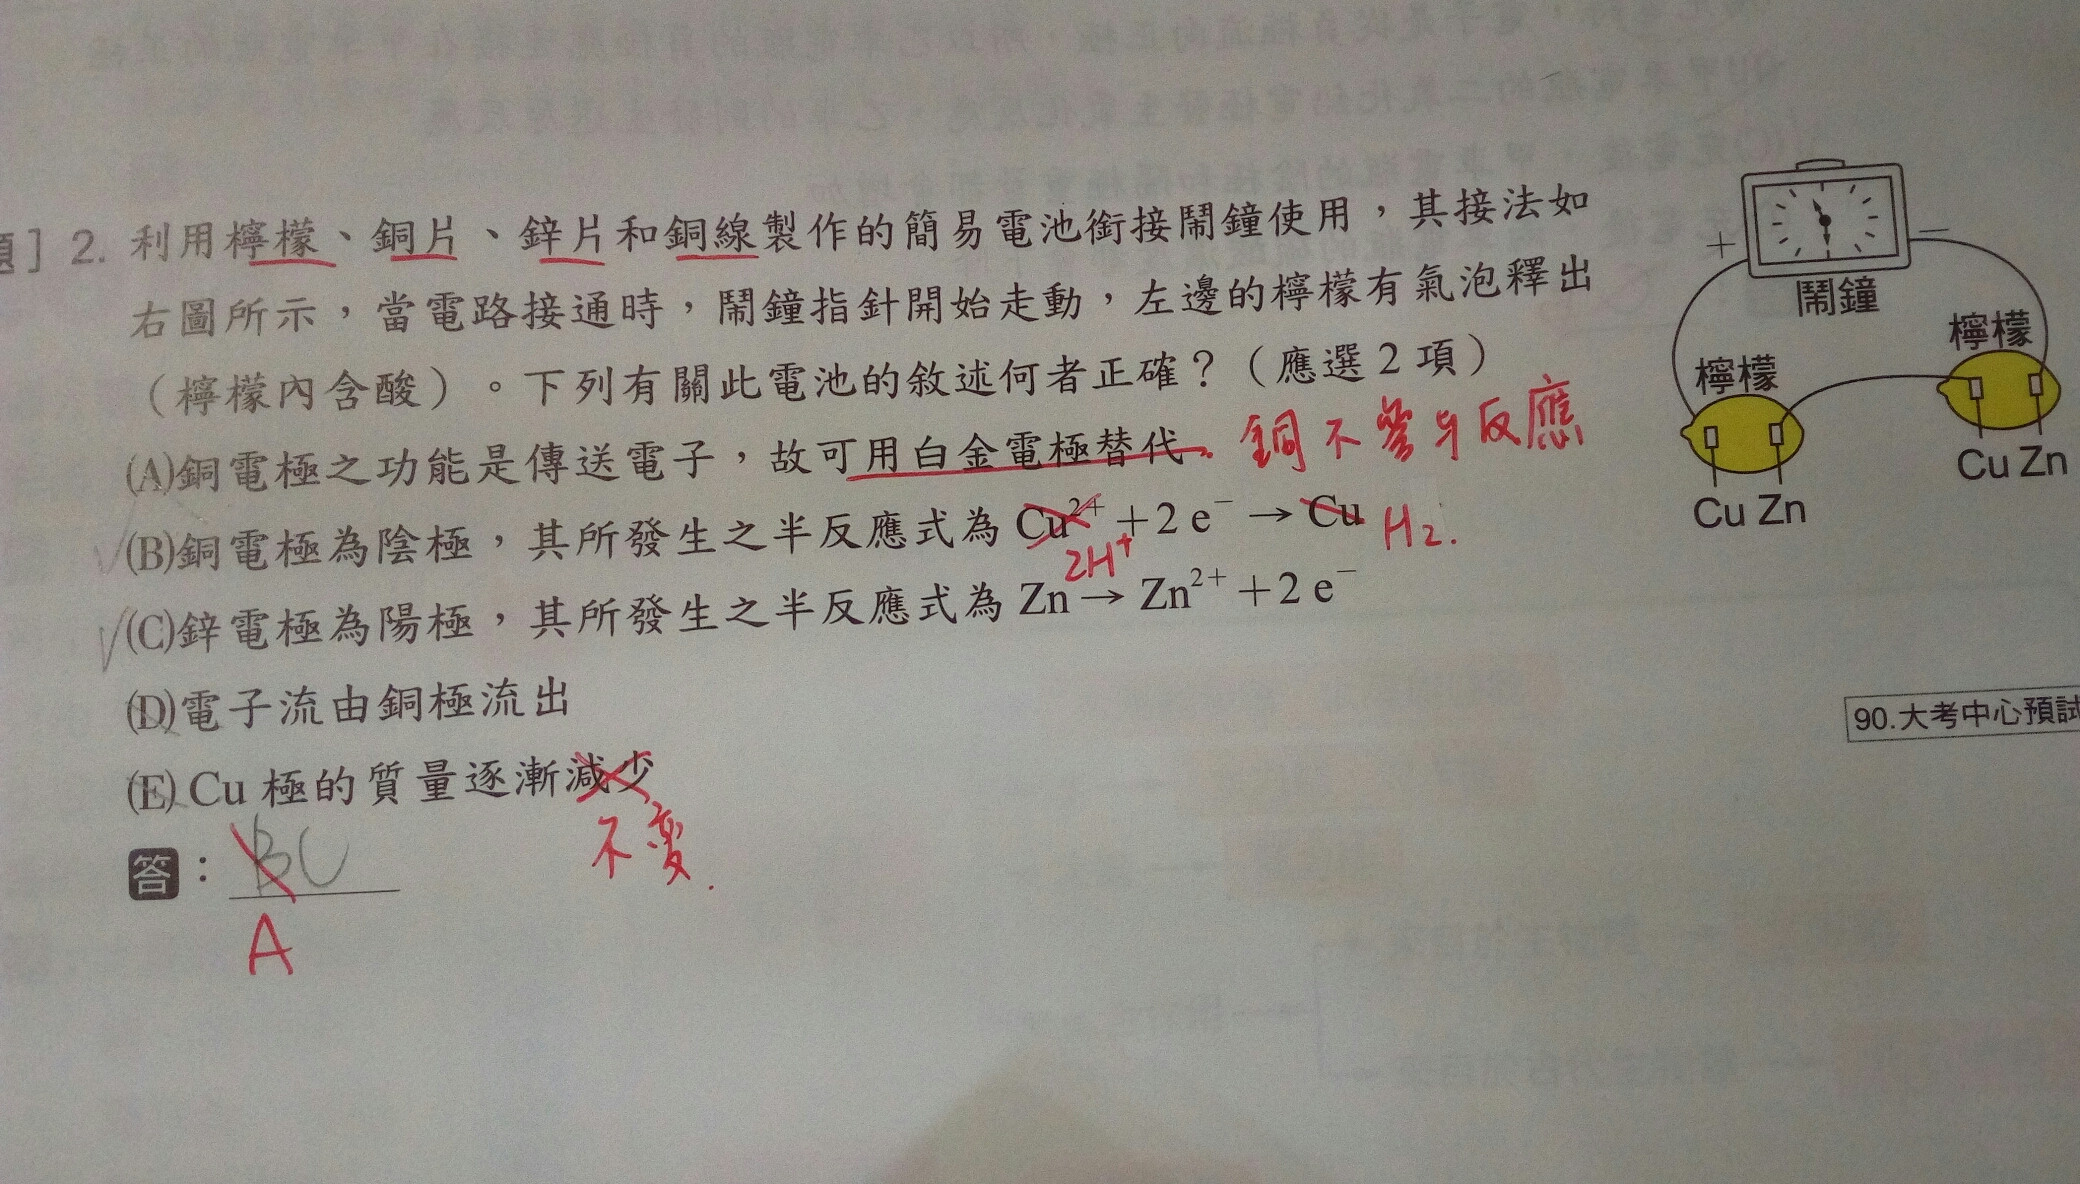 題］2. 利用檸檬、銅片、鋅片和銅線製作的簡易電池銜接鬧鐘使用，其接法如
右圖所示，當電路接通時，鬧鐘指針開始走動，左邊的檸檬有氣泡釋出
（檸檬內含酸）。下列有關此電池的敘述何者正確？（應選2項）
(A)銅電極之功能是傳送電子，故可用白金電極替代。銅不參与反應
(B)銅電極為陰極，其所發生之半反應式為 Cu²⁺＋2 e⁻→Cu H₂.
2H⁺
(C)鋅電極為陽極，其所發生之半反應式為 Zn→Zn²⁺＋2 e⁻
(D)電子流由銅極流出
(E) Cu 極的質量逐漸減少
不變.
答：BC
A
＋ －
鬧鐘
檸檬
檸檬
Cu Zn
Cu Zn
90.大考中心預試